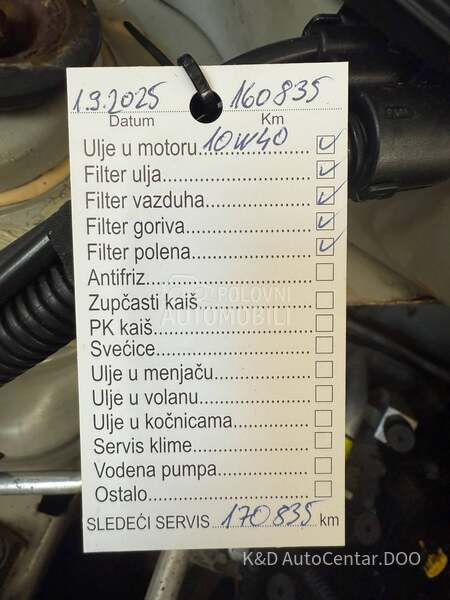 1.9.2025 160835
Datum Km
Ulje u motoru 10W40
Filter ulja
Filter vazduha
Filter goriva
Filter polena
Antifriz
POLOVNI
AUTOMOBILI
Zupčasti kaiš
PK kaiš
Svećice
Ulje u menjaču
Ulje u volanu
Ulje u kočnicama
Servis klime
Vodena pumpa
Ostalo
SLEDEĆI SERVIS 170835 km
K&D AutoCentar.DOO